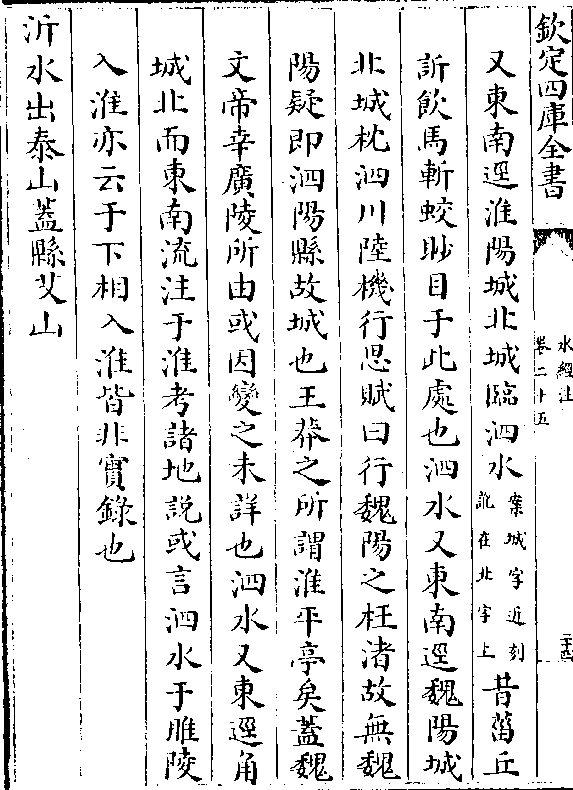 欽定四庫全書
水經注
卷二十五
二十四
又東南逕淮陽城北城臨泗水案城字近刻訛在北字上昔菑丘
訢飲馬斬蛟眇目于此處也泗水又東南逕魏陽城
北城枕泗川陸機行思賦曰行魏陽之枉渚故無魏
陽疑即泗陽縣故城也王莽之所謂淮平亭矣蓋魏
文帝幸廣陵所由或因變之未詳也泗水又東逕角
城北而東南流注于淮考諸地說或言泗水于睢陵
入淮亦云于下相入淮皆非實錄也
沂水出泰山蓋縣艾山